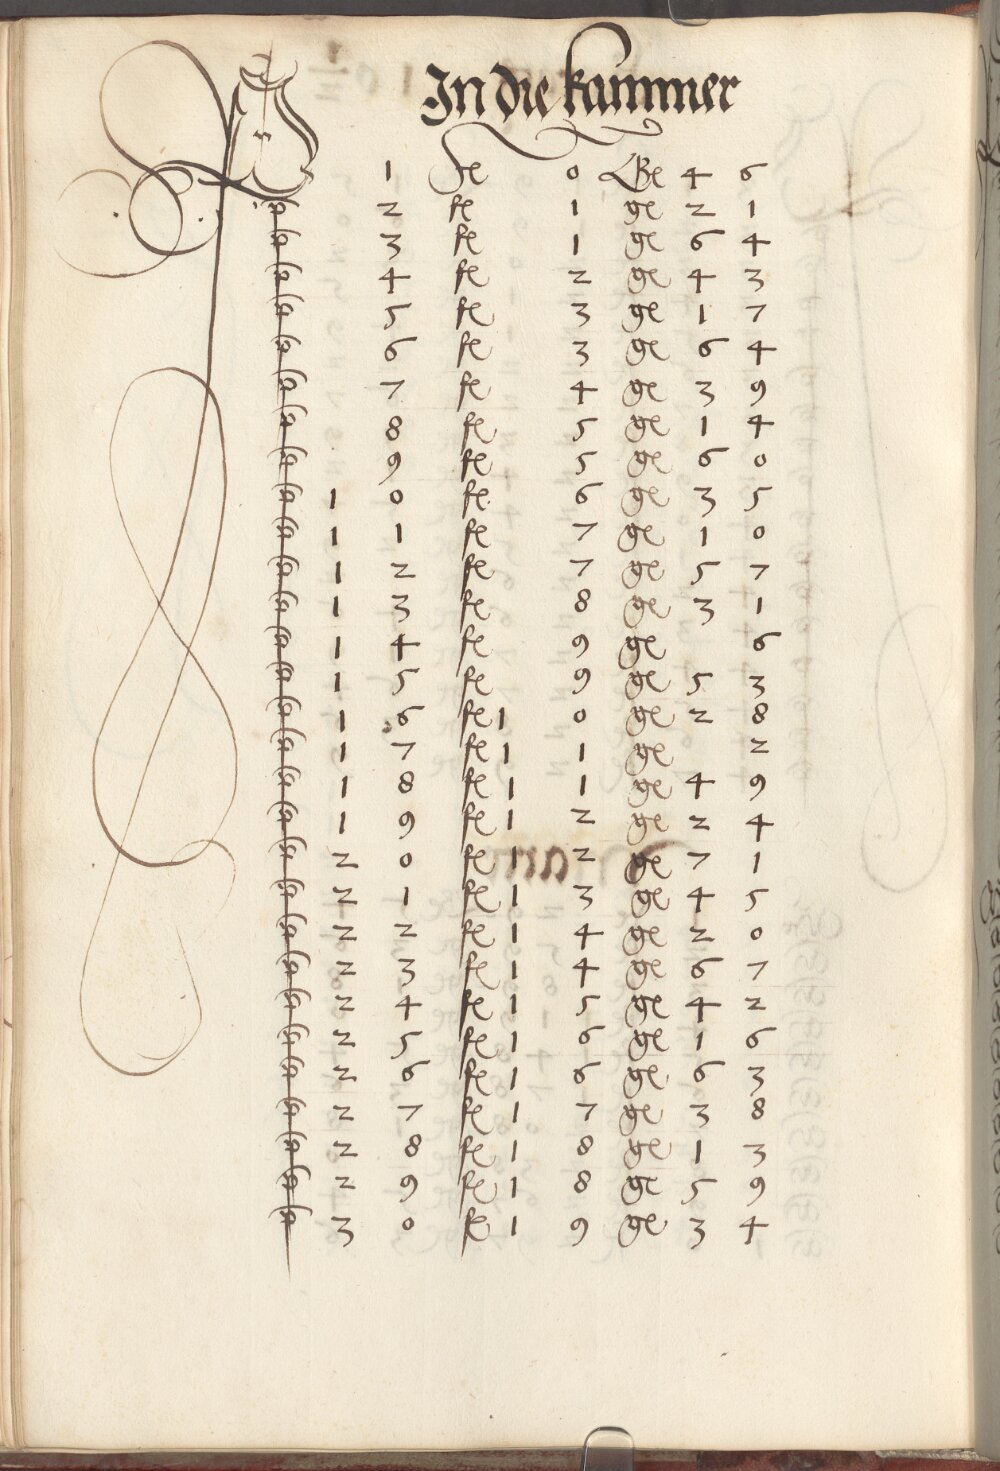 In die kammer
1 fe 0 Ge 4 6
a 2 fe 1 ge 2 1
a 3 fe 1 ge 6 4
a 4 fe 2 ge 4 3
a 5 fe 3 ge 1 7
a 6 fe 3 ge 6 4
a 7 fe 4 ge 3 9
a 8 fe 5 ge 1 4
a 9 fe 5 ge 6 0
a 1 0 fe 6 ge 3 5
a 1 1 fe 7 ge 1 0
a 1 2 fe 7 ge 5 7
a 1 3 fe 8 ge 3 1
a 1 4 fe 9 ge 6
a 1 5 fe 9 ge 5 3
a 1 6 fe 1 0 ge 2 8
a 1 7 fe 1 1 ge 2
a 1 8 fe 1 1 ge 4 9
a 1 9 fe 1 2 ge 2 4
a 2 0 fe 1 2 ge 7 1
a 2 1 fe 1 3 ge 4 5
a 2 2 fe 1 4 ge 2 0
a 2 3 fe 1 4 ge 6 7
a 2 4 fe 1 5 ge 4 2
a 2 5 fe 1 6 ge 1 6
a 2 6 fe 1 6 ge 6 3
a 2 7 fe 1 7 ge 3 8
a 2 8 fe 1 8 ge 1 3
a 2 9 fe 1 8 ge 5 9
a 3 0 fe 1 9 ge 3 4